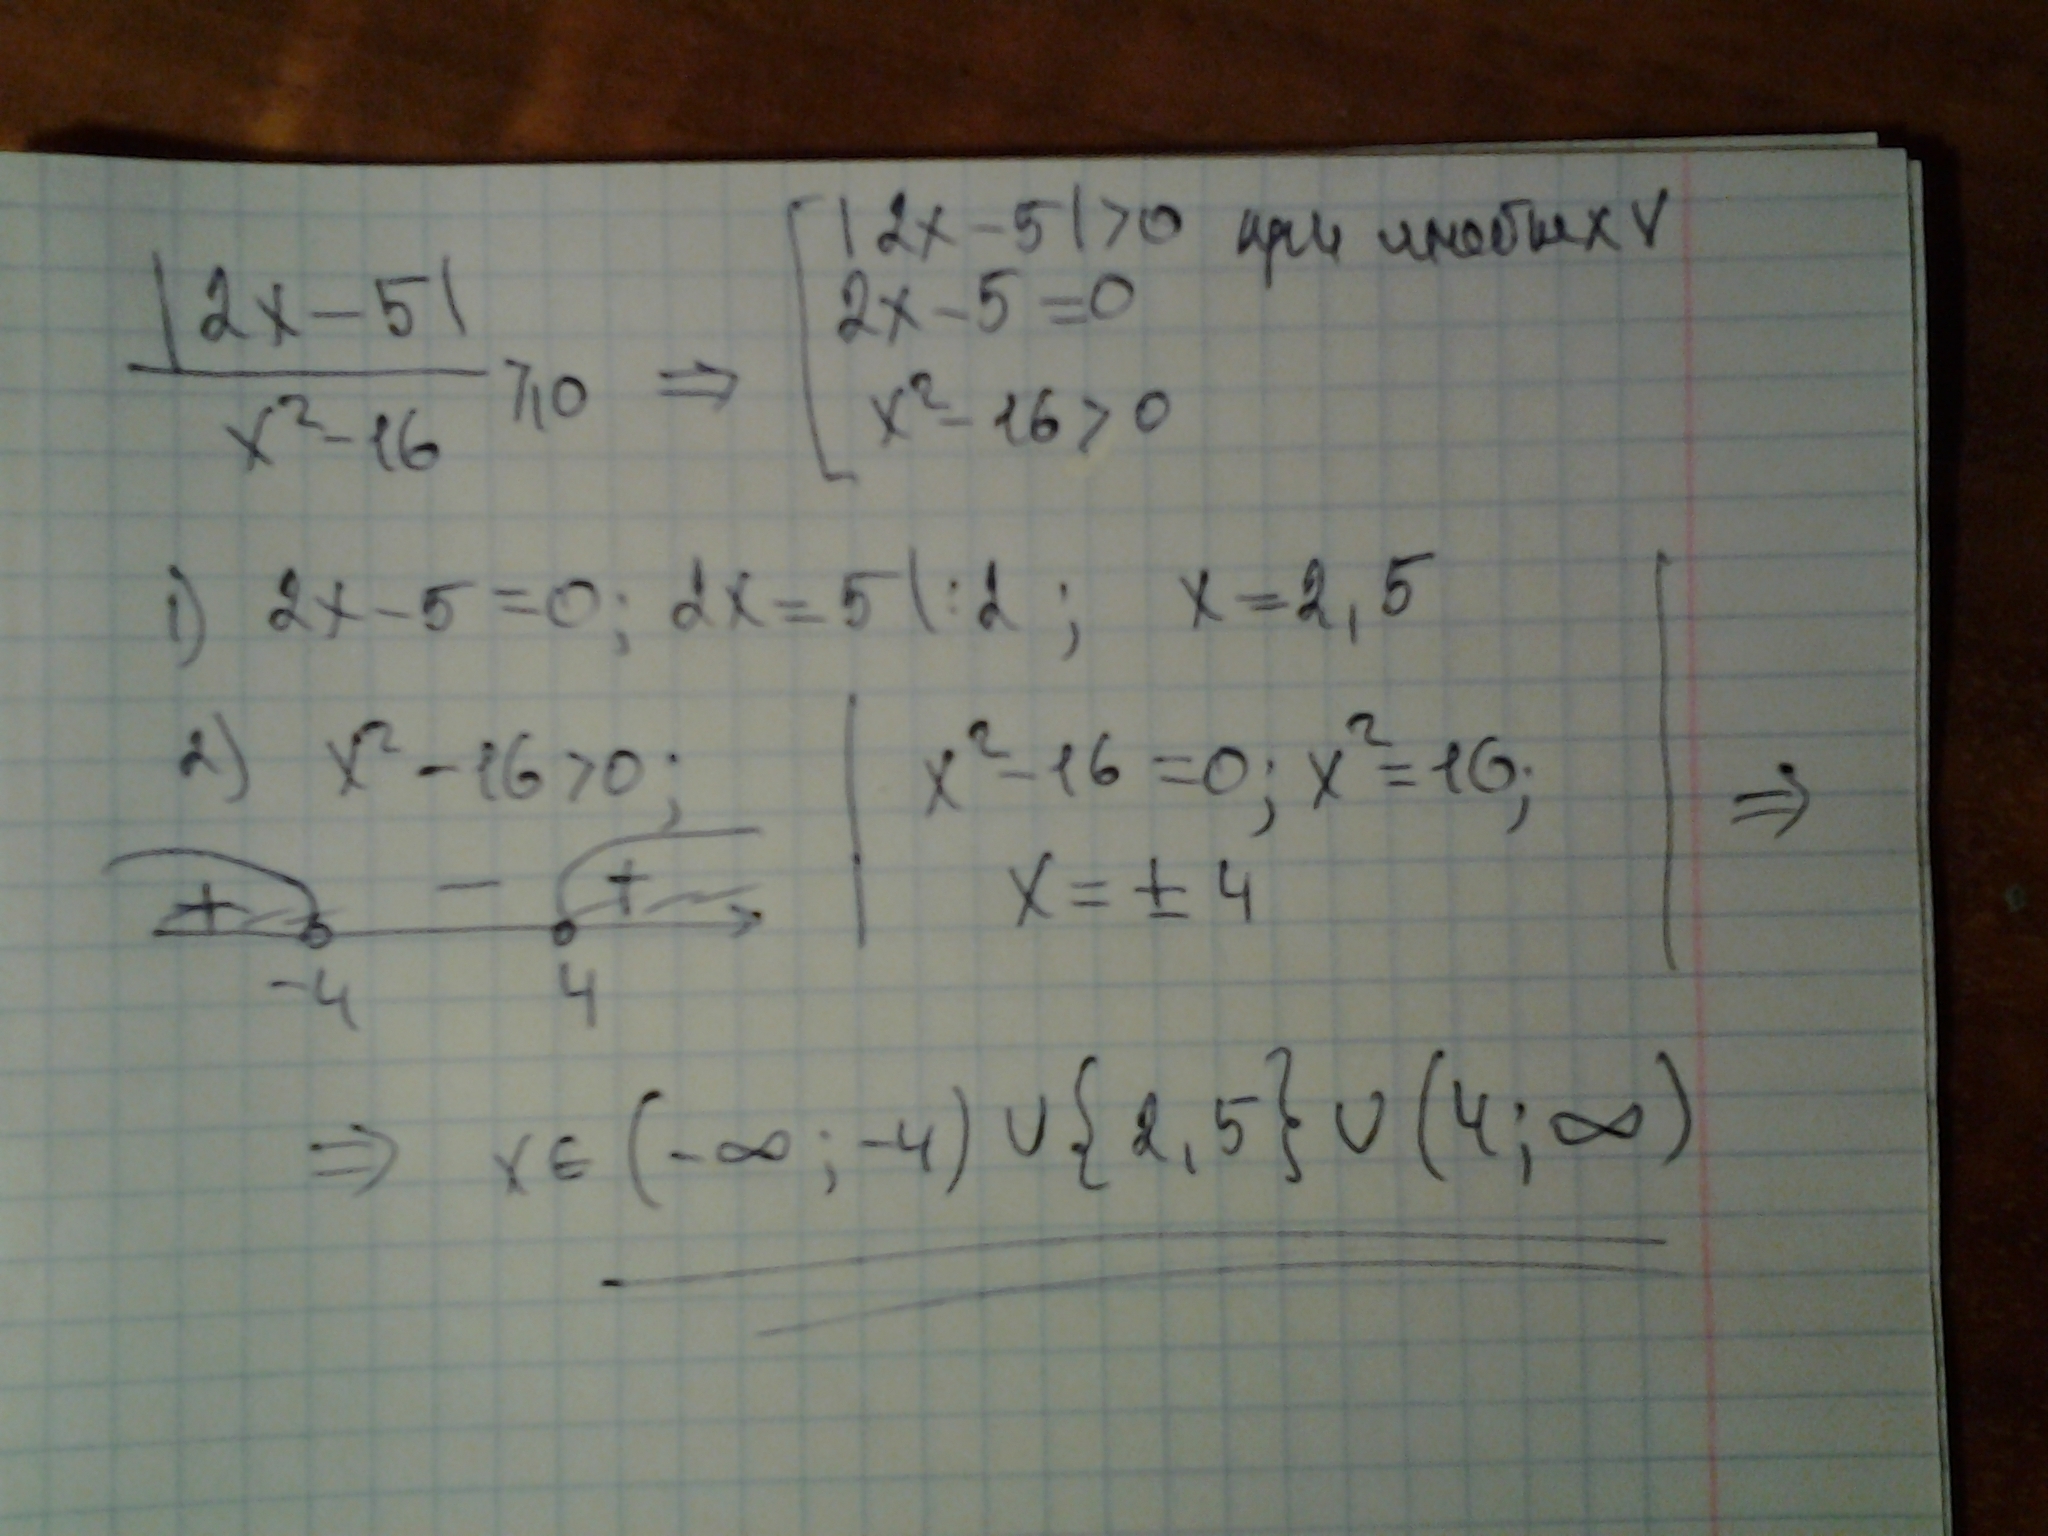 |2x-5|
x²-16 ⩾0 ⇒
|2x-5|>0 при любых x
2x-5=0
x²-16>0
1) 2x-5=0; 2x=5|:2; x=2,5
2) x²-16>0; x²-16=0; x²=16; ⇒
x=±4
+ - +
-4 4
⇒ x∈(-∞;-4)∪{2,5}∪(4;∞)